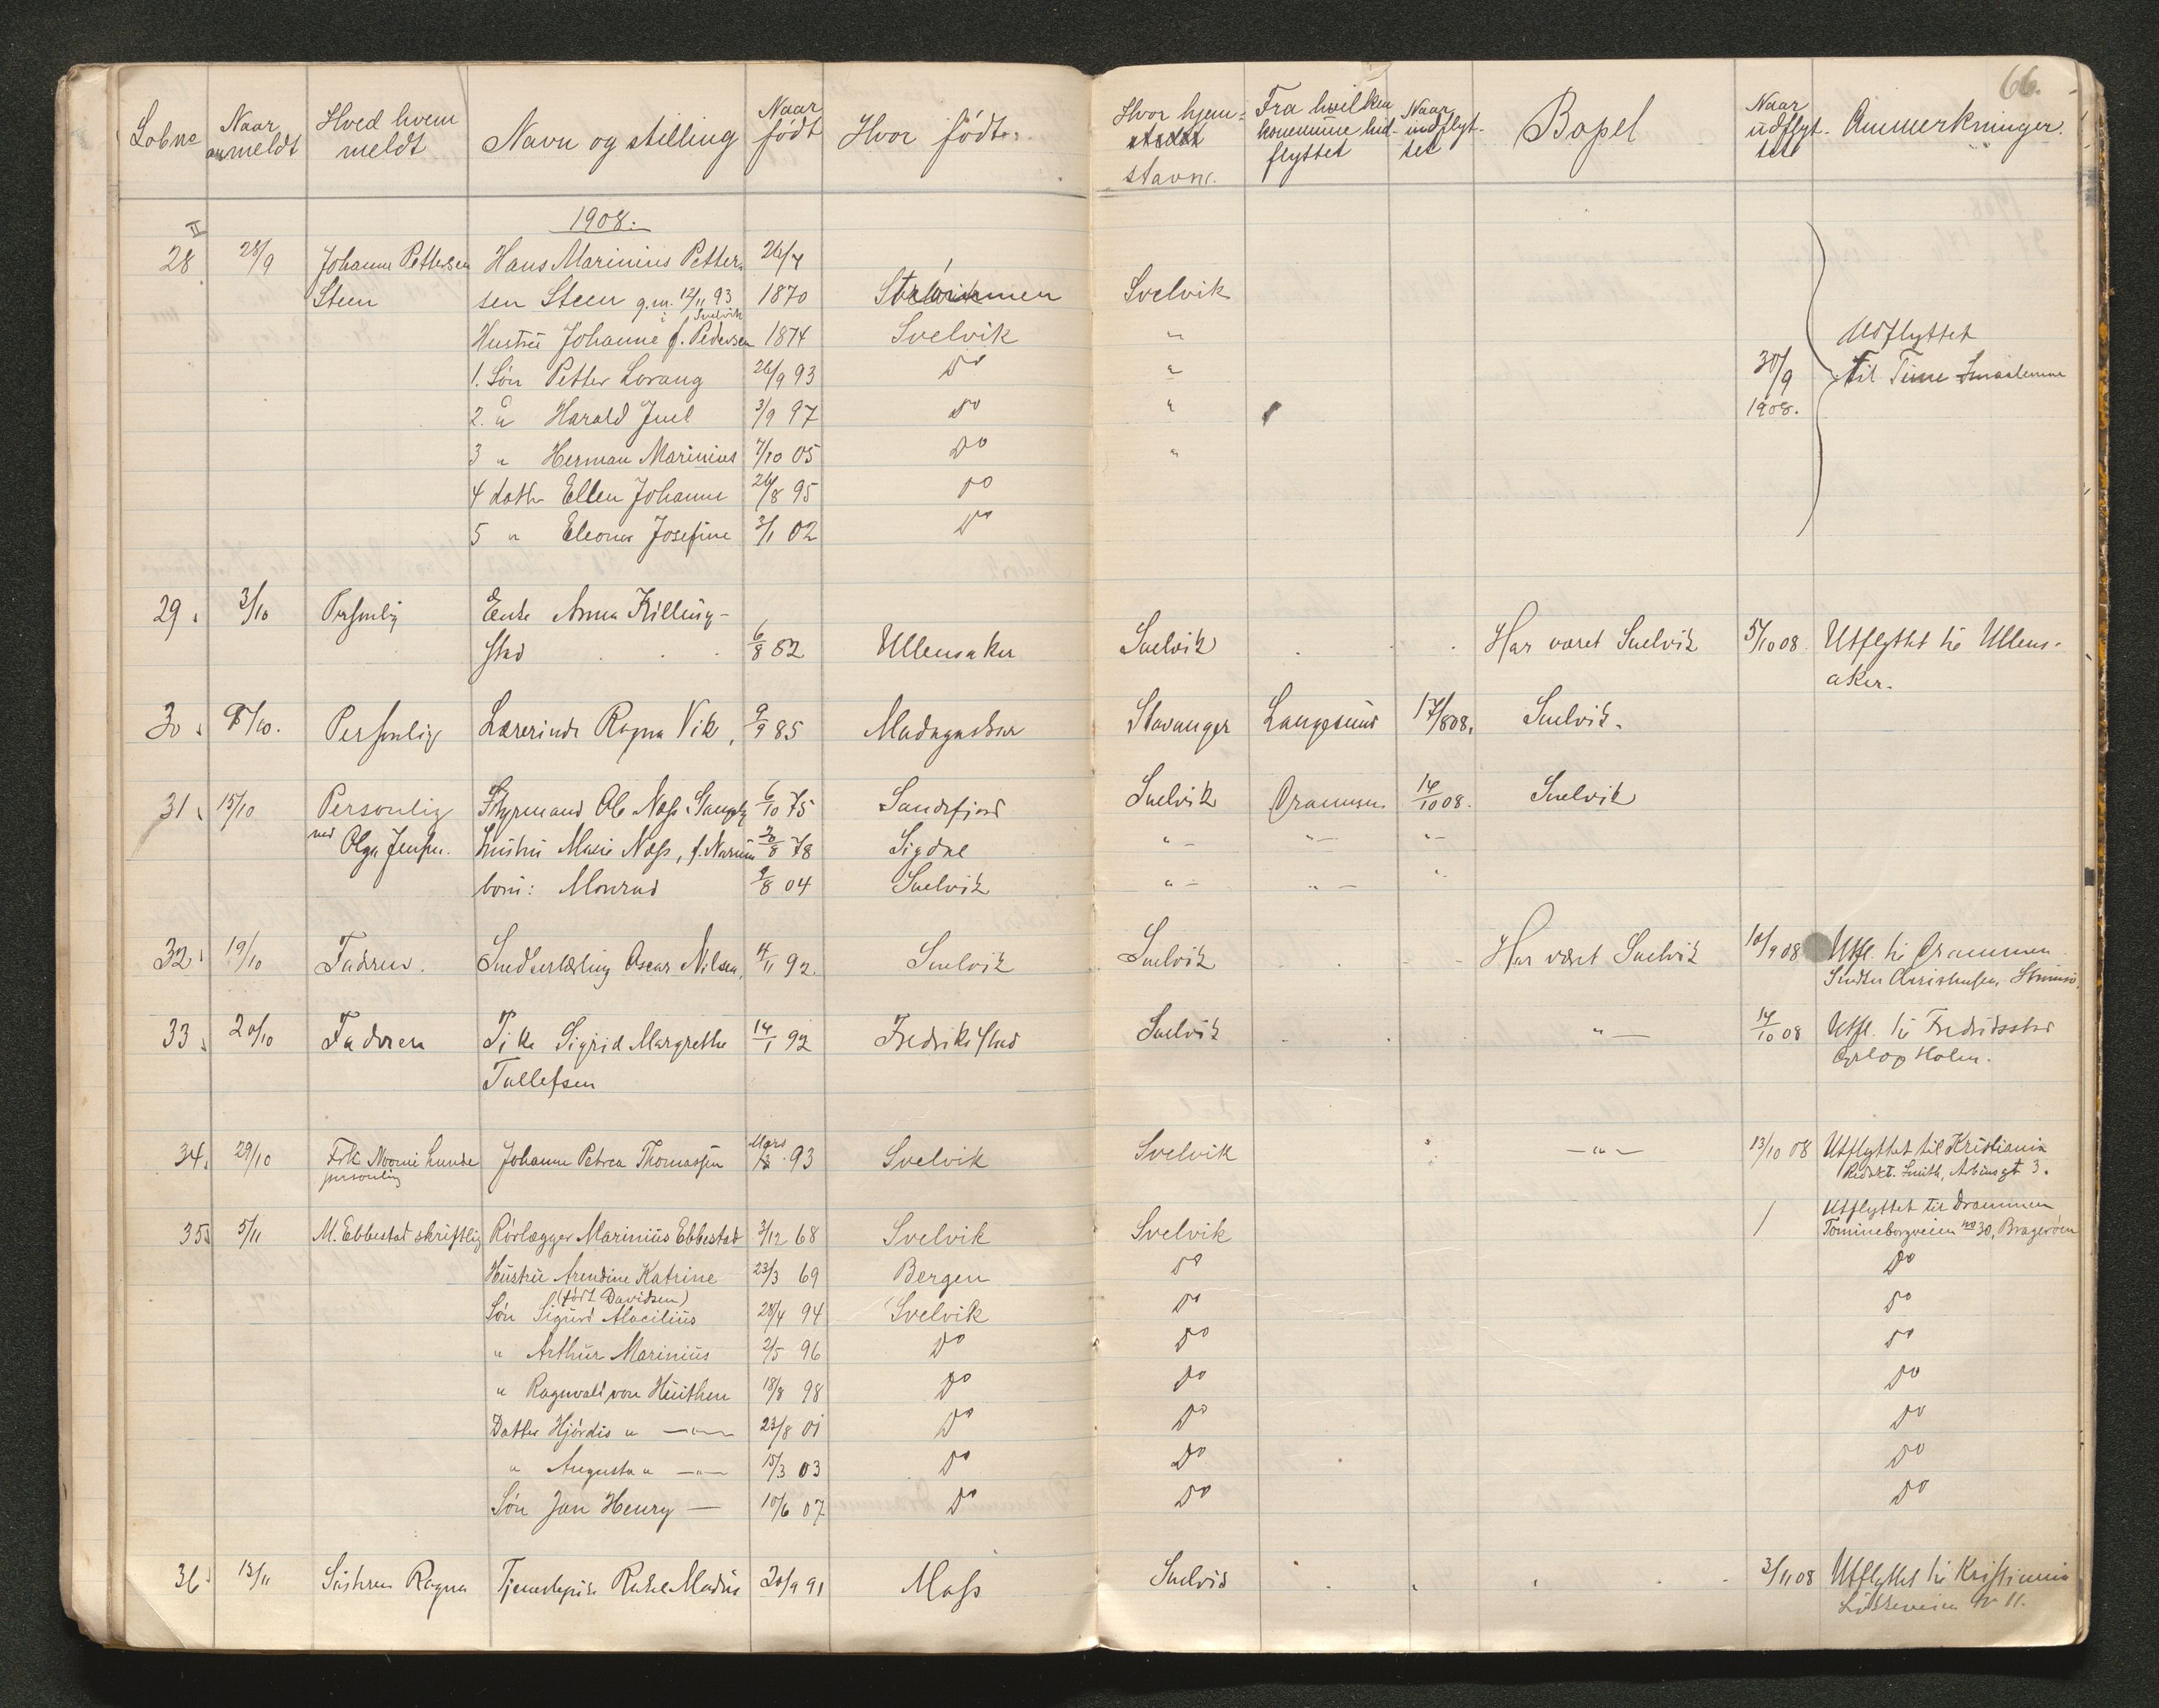 66.
Lobne Naar anmeldt Hved hvem meldt Navn og stilling Naar født Hvor født: Hvor hjem= stavn. Fra hvilken kommune hid- flyttet Naar indflyt- tet Bopel Naar udflyt- tet Anmerkninger.
1908.
28 II 28/9 Johanne Pettersen Hans Marinius Petter- 26/7
Steen sen Steen g.m. 12/11 93 1870 Strømmen Svelvik
i Svelvik
Hustru Johanne f. Pedersen 1874 Svelvik " Udflyttet
1. Søn Petter Lorang 26/9 93 Do " 30/9 Til Tune Smaalenene
2. " Harald Juel 3/9 97 Do " 1908.
3 " Herman Marinius 7/10 05 Do "
4 datter Ellen Johanne 26/8 95 Do
5 " Eleonor Josefine 3/1 02 Do
29. 3/10 Personlig Enke Anna Killing-
stad 6/8 52 Ullensaker Svelvik Har været Svelvik 5/10 08. Utflyttet til Ullens-
aker.
30. 8/10. Personlig Lærerinde Ragna Vik, 9/9 85 Madagaskar Stavanger Langesund 17/8 08. Svelvik.
31. 15/10 Personlig Styrmand Ole Næss 6/10 75 Sandefjord Svelvik Drammen 14/10 08. Svelvik
ved Olga Jensen. hustru Marie Næss, f. Narum 30/8 78 Sigdal " - " - " -
barn: Monrad 9/8 04 Svelvik " - " - "
32. 19/10 Faderen. Smedlærling Oscar Nilsen, 4/11 92. Svelvik Svelvik Har været Svelvik 10/9 08 Utfl. til Drammen
33. 20/10 Faderen Pike Sigrid Margrethe 14/1 92 Fredrikstad Svelvik " — 14/10 08 Utfl. til Fredrikstad
Tallefsen Holm.
34. 29/10 Frk Noomi Lunde Johanne Petrea Thomassen Mars 93 Svelvik Svelvik — " — 13/10 08 Utflyttet til Kristiania
personlig Redakt. Smith, 3.
35. 5/11 M. Ebbestad skriftlig Rørlægger Marinius Ebbestad 3/12 68 Svelvik Svelvik / Utflyttet til Drammen
no 30, Bragerøen
Hustru Arendine Katrine 23/3 69 Bergen Do Do
(født Davidsen)
Søn Sigurd 28/4 94 Svelvik Do Do
" Arthur Marinius 2/5 96 Do Do Do
" Ragnvald von Huithen 18/8 98 Do Do Do
Datter Hjørdis " — " — 23/8 01 Do Do Do
" Augusta " — " — 15/3 03 Do Do Do
Søn Jan Henry — 10/6 07 Do Do Do
36. 13/11 Søsteren Ragna Tjenestepike Rakel Madsis 20/9 91 Moss Svelvik 3/11 08 Utflyttet til Kristiania
Nr 11.